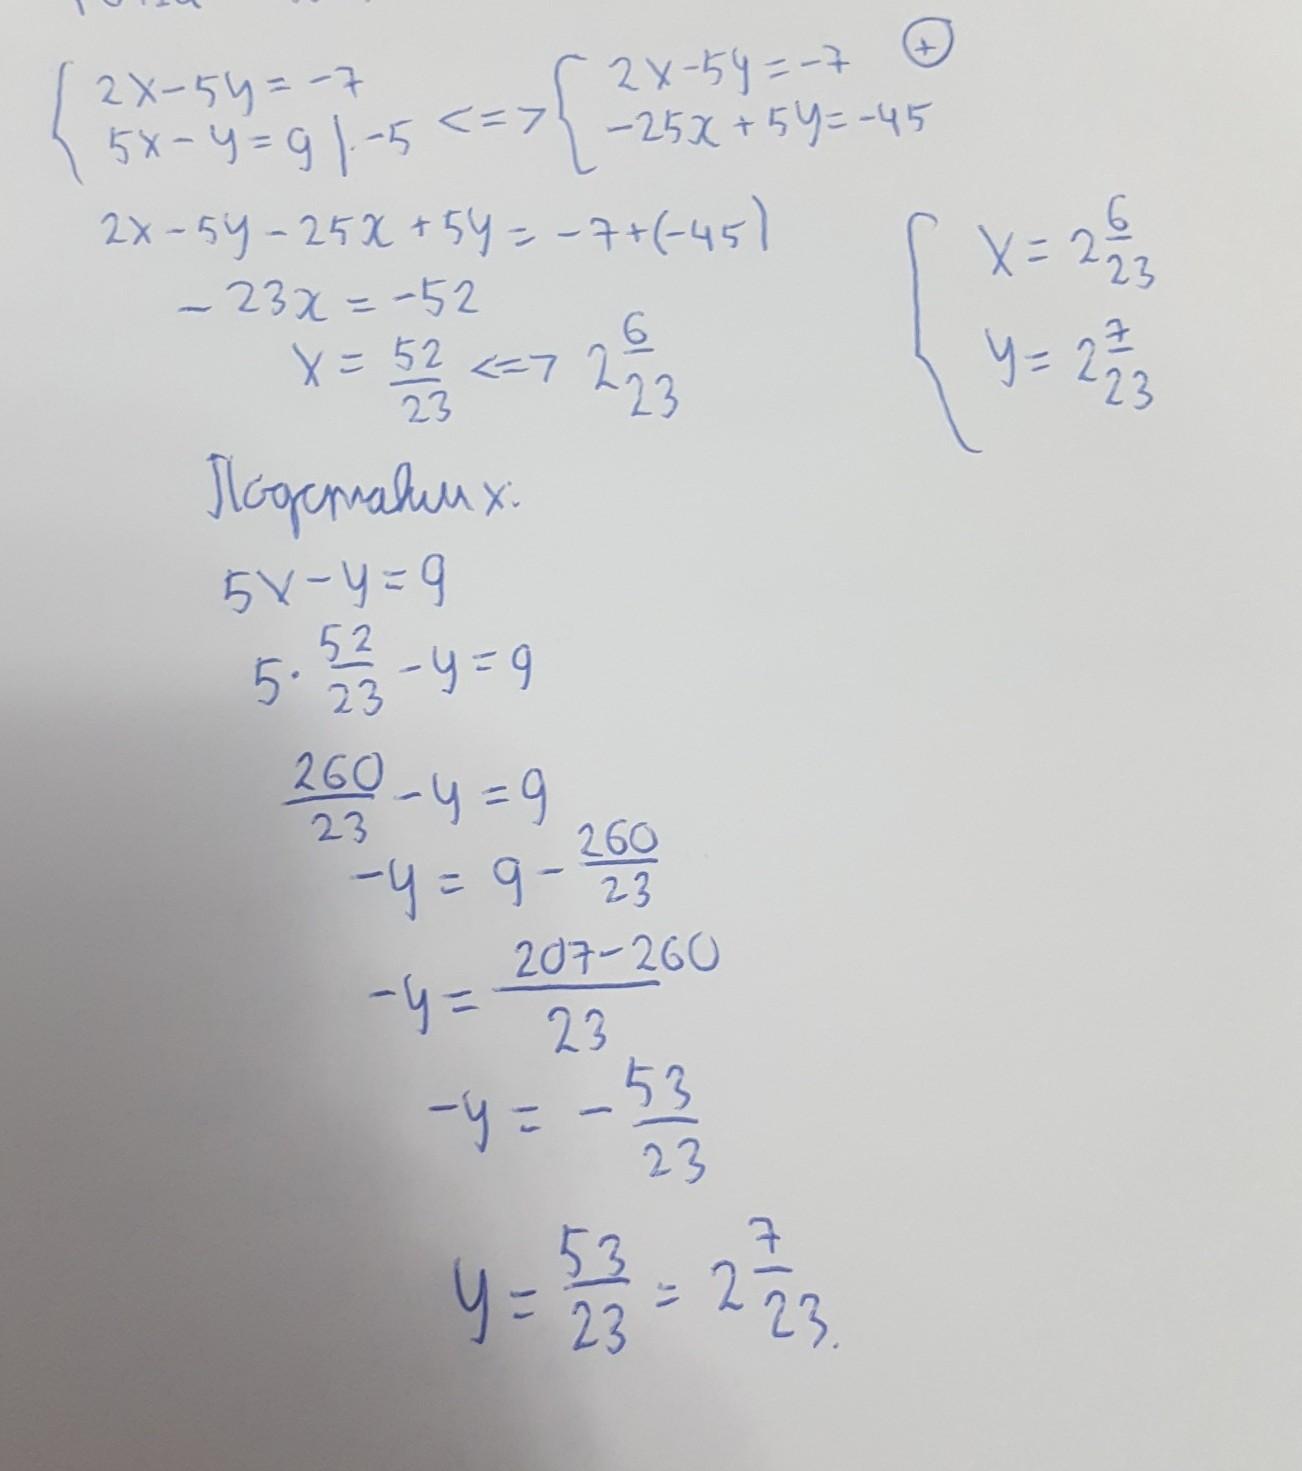 { 2x-5y=-7 <=> { 2x-5y=-7 (+)
5x-y=9 |·-5 -25x+5y=-45
2x-5y-25x+5y=-7+(-45)
-23x=-52
x=52/23 <=> 2 6/23
{ x=2 6/23
y=2 7/23
Подставим x:
5x-y=9
5·52/23-y=9
260/23-y=9
-y=9-260/23
-y=207-260/23
-y=-53/23
y=53/23=2 7/23.